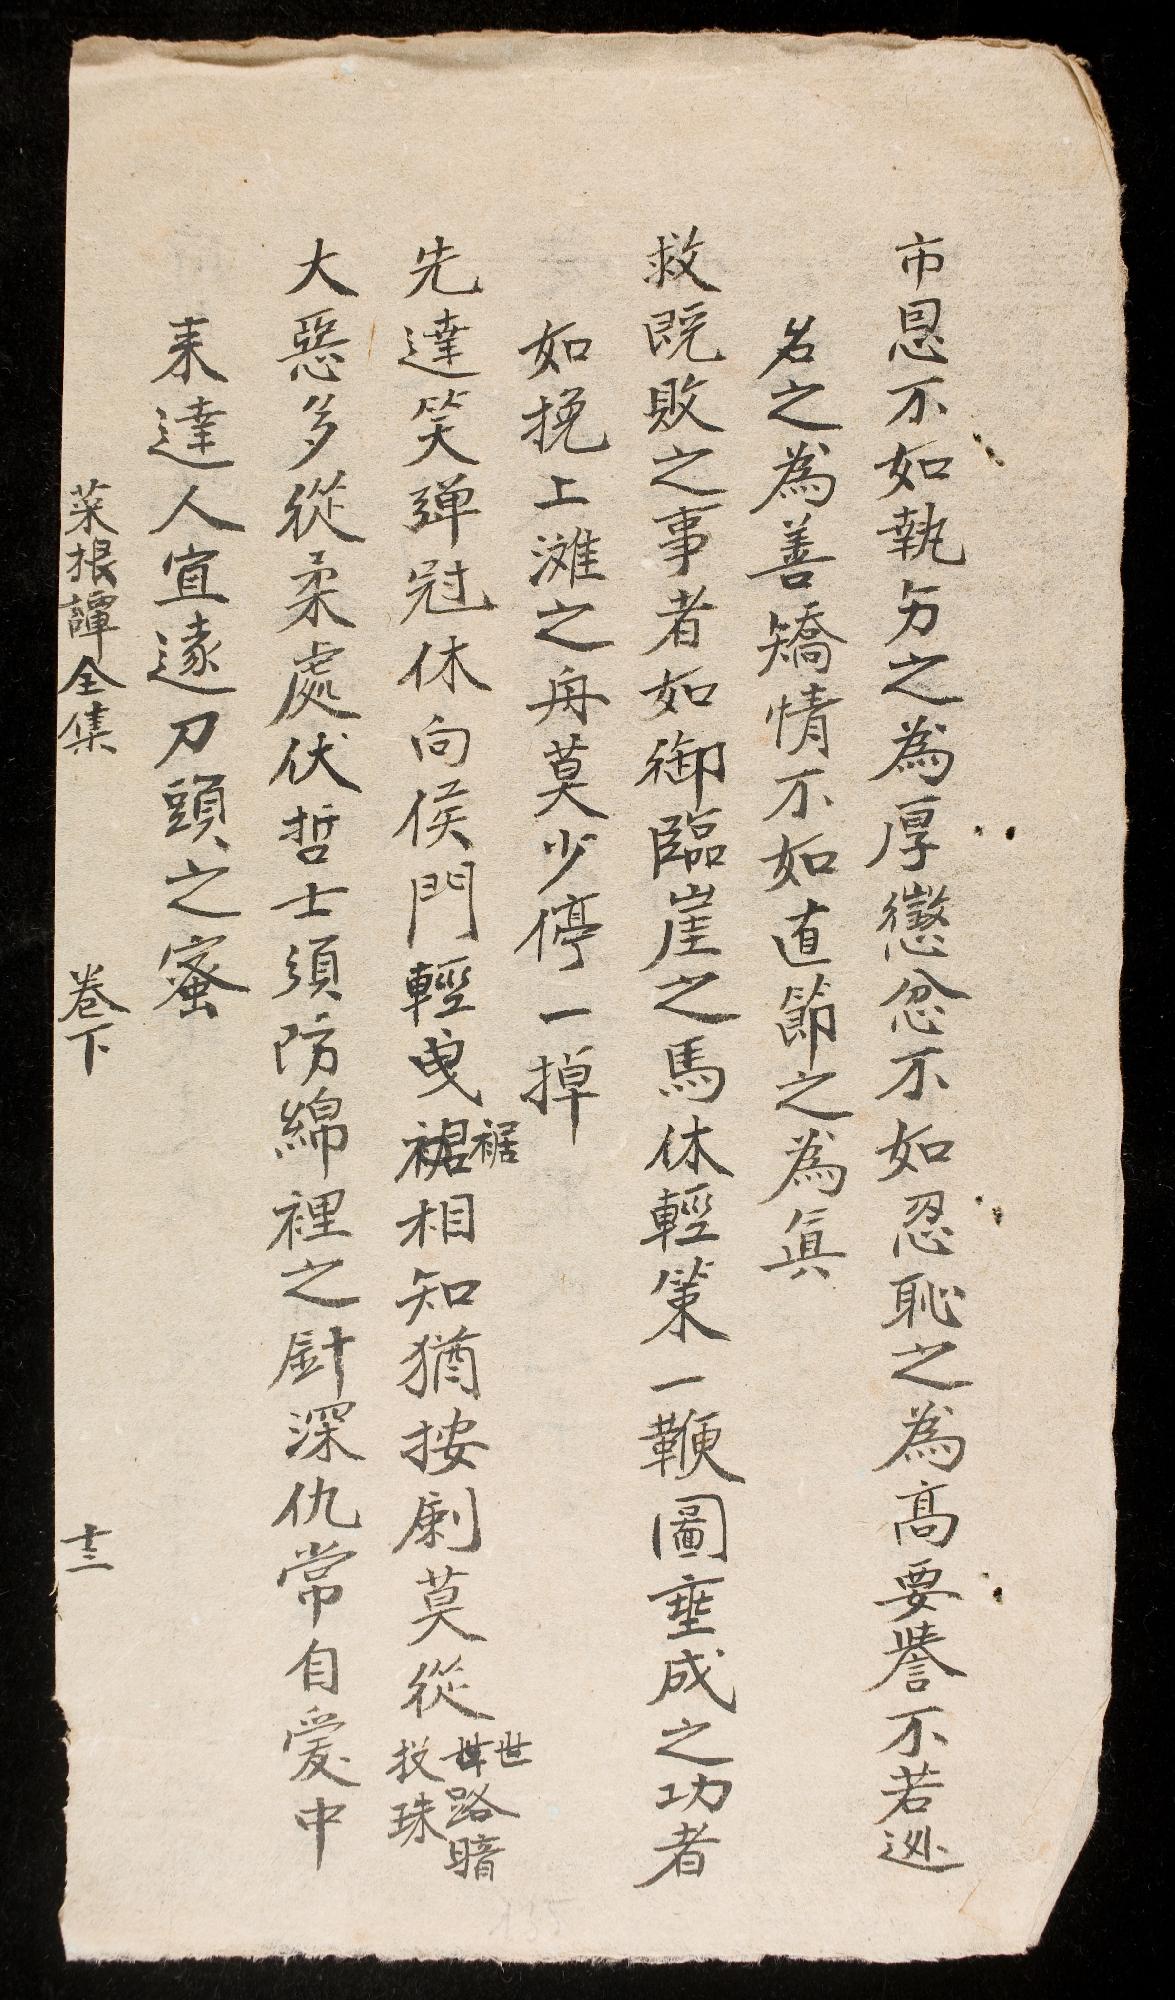 市恩不如執方之為厚懲忿不如忍恥之為高要譽不若逊
名之為善矯情不如直節之為真
救既敗之事者如御臨崖之馬休輕策一鞭圖垂成之功者
如挽上灘之舟莫少停一掉
先達笑彈冠休向侯門輕曳裾裾相知猶按劍莫從世世路暗投珠
大惡多從柔處伏哲士須防綿裡之針深仇常自愛中
来達人宜遠刀頭之蜜
菜根譚全集 卷下 十三